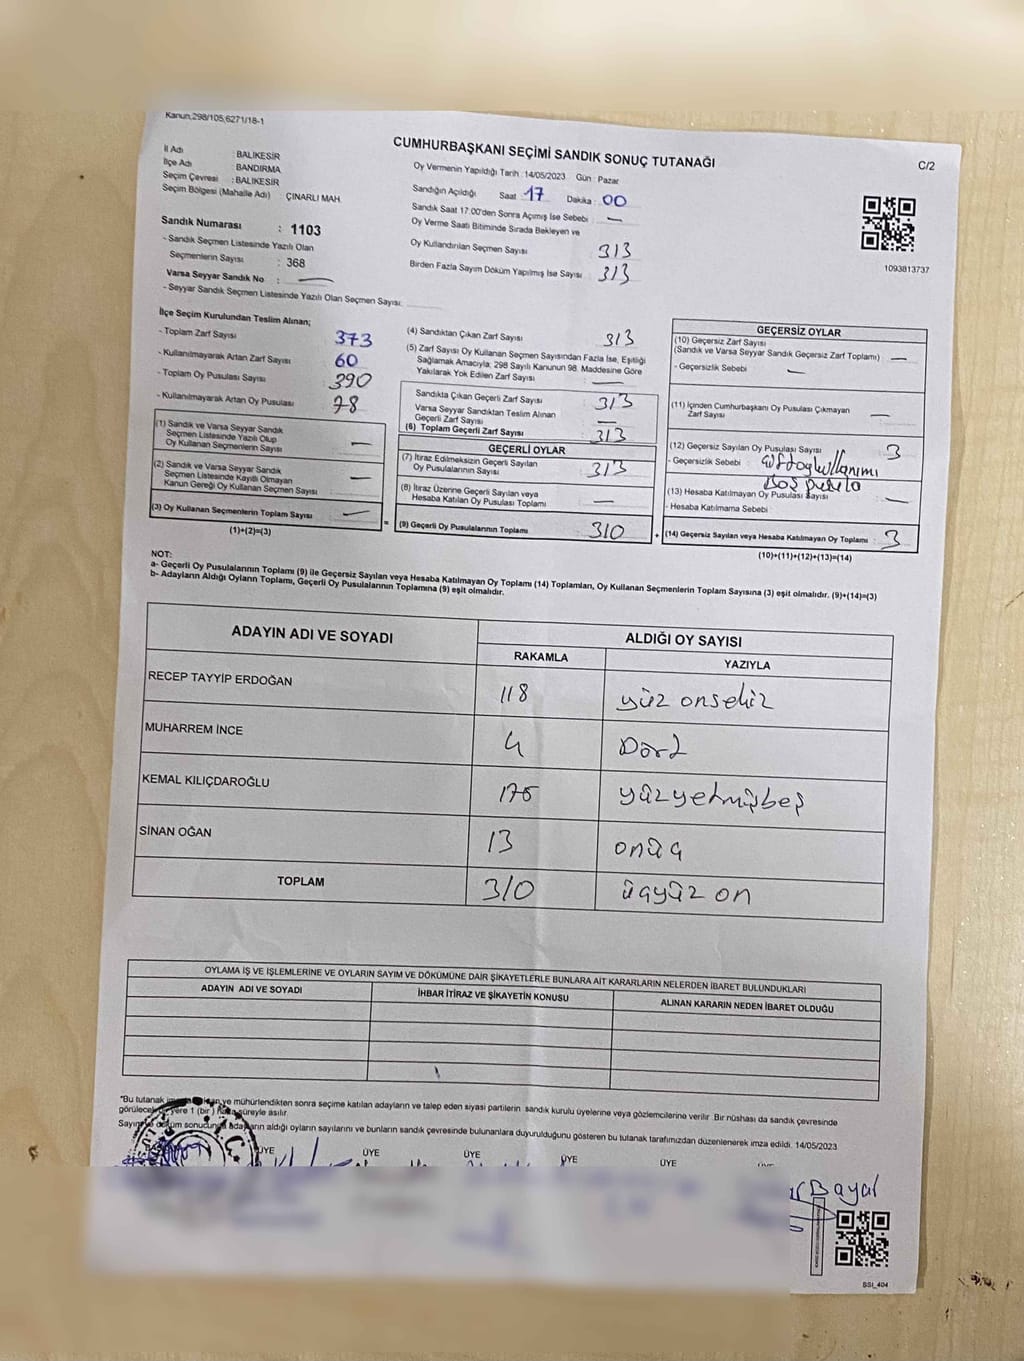 Kanun,298/105;6271/18-1
CUMHURBAŞKANI SEÇİMİ SANDIK SONUÇ TUTANAĞI
C/2
İl Adı : BALIKESİR
İlçe Adı : BANDIRMA
Seçim Çevresi : BALIKESİR
Seçim Bölgesi (Mahalle Adı) ÇINARLI MAH.
Oy Vermenin Yapıldığı Tarih : 14/05/2023 Gün : Pazar
Sandığın Açıldığı Saat 17 Dakika : 00
Sandık Saat 17.00'den Sonra Açımış İse Sebebi : —
Oy Verme Saati Bitiminde Sırada Bekleyen ve
Oy Kullandırılan Seçmen Sayısı 313
Birden Fazla Sayım Döküm Yapılmış İse Sayısı 313
1093813737
Sandık Numarası : 1103
- Sandık Seçmen Listesinde Yazılı Olan
Seçmenlerin Sayısı : 368
Varsa Seyyar Sandık No : —
- Seyyar Sandık Seçmen Listesinde Yazılı Olan Seçmen Sayısı:
İlçe Seçim Kurulundan Teslim Alınan;
- Toplam Zarf Sayısı : 373
- Kullanılmayarak Artan Zarf Sayısı : 60
- Toplam Oy Pusulası Sayısı : 390
- Kullanılmayarak Artan Oy Pusulası : 78
(1) Sandık ve Varsa Seyyar Sandık
Seçmen Listesinde Yazılı Olup
Oy Kullanan Seçmenlerin Sayısı —
(2) Sandık ve Varsa Seyyar Sandık
Seçmen Listesinde Kayıtlı Olmayan
Kanun Gereği Oy Kullanan Seçmen Sayısı —
(3) Oy Kullanan Seçmenlerin Toplam Sayısı —
(1)+(2)=(3)
=
(4) Sandıktan Çıkan Zarf Sayısı 313
(5) Zarf Sayısı Oy Kullanan Seçmen Sayısından Fazla İse, Eşitliği
Sağlamak Amacıyla; 298 Sayılı Kanunun 98. Maddesine Göre
Yakılarak Yok Edilen Zarf Sayısı —
Sandıkta Çıkan Geçerli Zarf Sayısı 313
Varsa Seyyar Sandıktan Teslim Alınan
Geçerli Zarf Sayısı —
(6) Toplam Geçerli Zarf Sayısı 313
GEÇERLİ OYLAR
(7) İtiraz Edilmeksizin Geçerli Sayılan
Oy Pusulalarının Sayısı 313
(8) İtiraz Üzerine Geçerli Sayılan veya
Hesaba Katılan Oy Pusulası Toplamı —
(9) Geçerli Oy Pusulalarının Toplamı 310
+
GEÇERSİZ OYLAR
(10) Geçersiz Zarf Sayısı
(Sandık ve Varsa Seyyar Sandık Geçersiz Zarf Toplamı) —
- Geçersizlik Sebebi : —
(11) İçinden Cumhurbaşkanı Oy Pusulası Çıkmayan
Zarf Sayısı —
(12) Geçersiz Sayılan Oy Pusulası Sayısı 3
- Geçersizlik Sebebi : çift oy kullanımı
Boş pusula
(13) Hesaba Katılmayan Oy Pusulası Sayısı —
- Hesaba Katılmama Sebebi :
(14) Geçersiz Sayılan veya Hesaba Katılmayan Oy Toplamı 3
(10)+(11)+(12)+(13)=(14)
NOT:
a- Geçerli Oy Pusulalarının Toplamı (9) ile Geçersiz Sayılan veya Hesaba Katılmayan Oy Toplamı (14) Toplamları, Oy Kullanan Seçmenlerin Toplam Sayısına (3) eşit olmalıdır. (9)+(14)=(3)
b- Adayların Aldığı Oyların Toplamı, Geçerli Oy Pusulalarının Toplamına (9) eşit olmalıdır.
ADAYIN ADI VE SOYADI
ALDIĞI OY SAYISI
RAKAMLA YAZIYLA
RECEP TAYYİP ERDOĞAN 118 yüz onsekiz
MUHARREM İNCE 4 Dört
KEMAL KILIÇDAROĞLU 175 yüzyetmişbeş
SİNAN OĞAN 13 onüç
TOPLAM 310 üçyüz on
OYLAMA İŞ VE İŞLEMLERİNE VE OYLARIN SAYIM VE DÖKÜMÜNE DAİR ŞİKAYETLERLE BUNLARA AİT KARARLARIN NELERDEN İBARET BULUNDUKLARI
ADAYIN ADI VE SOYADI İHBAR İTİRAZ VE ŞİKAYETİN KONUSU ALINAN KARARIN NEDEN İBARET OLDUĞU
"Bu tutanak ve mühürlendikten sonra seçime katılan adayların ve talep eden siyasi partilerin sandık kurulu üyelerine veya gözlemcilerine verilir. Bir nüshası da sandık çevresinde
görülecek bir yere 1 (bir) hafta süreyle asılır.
Sayım ve döküm sonucunda adayların aldığı oyların sayılarını ve bunların sandık çevresinde bulunanlara duyurulduğunu gösteren bu tutanak tarafımızdan düzenlenerek imza edildi. 14/05/2023
ÜYE ÜYE ÜYE ÜYE ÜYE
Bayal
BSI_404